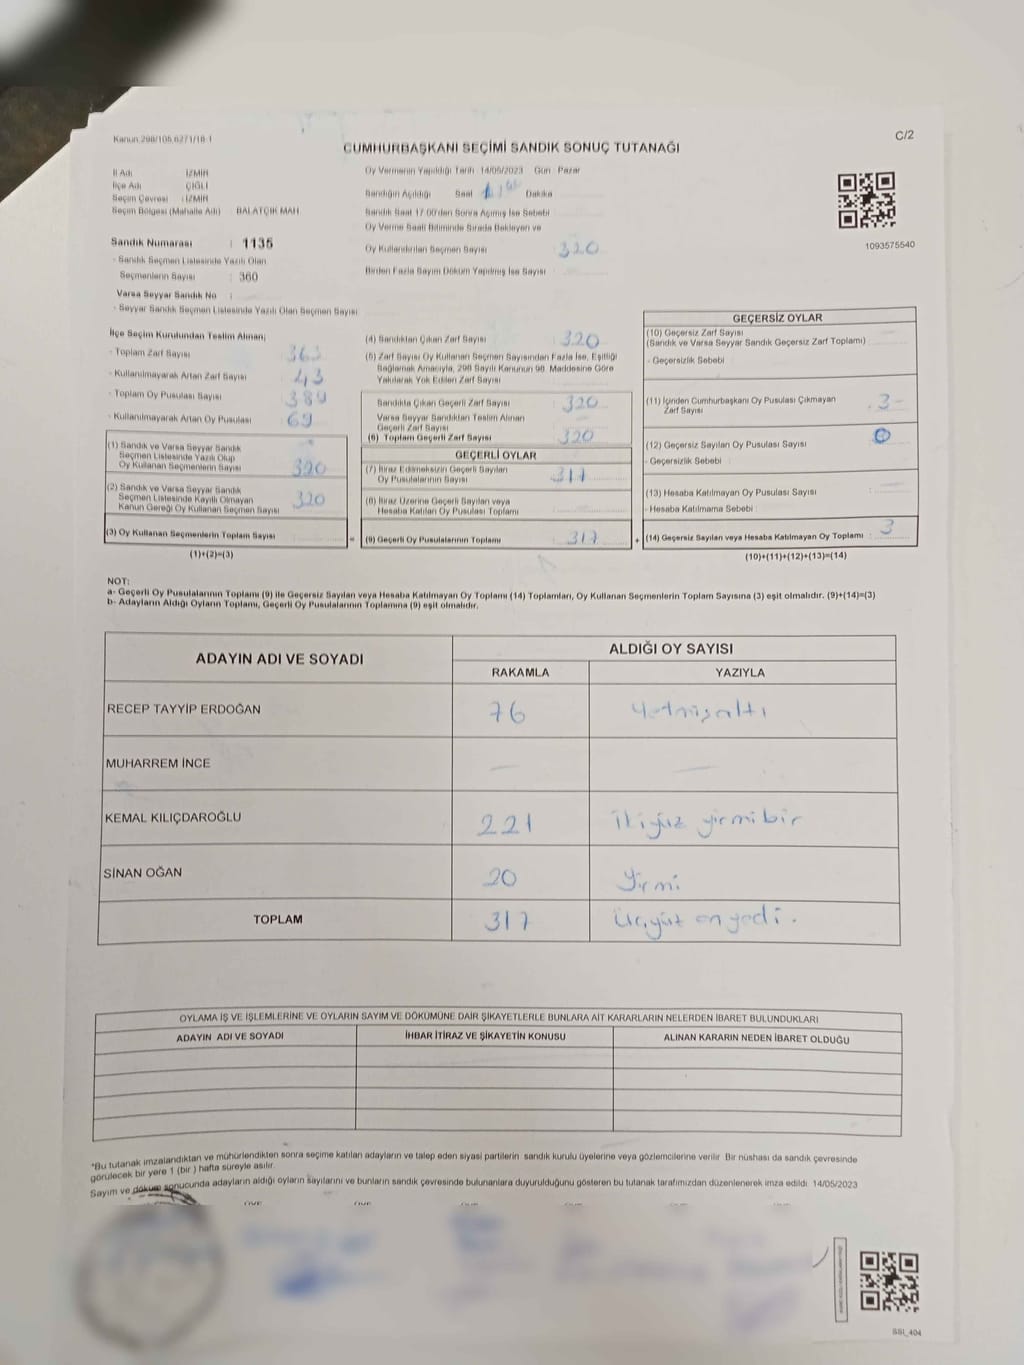 Kanun 298/105,6271/18-1
C/2
CUMHURBAŞKANI SEÇİMİ SANDIK SONUÇ TUTANAĞI
İl Adı : İZMİR
İlçe Adı : ÇİĞLİ
Seçim Çevresi : İZMİR
Seçim Bölgesi (Mahalle Adı) : BALATÇIK MAH
Oy Vermenin Yapıldığı Tarih 14/05/2023 Gün Pazar
Sandığın Açıldığı Saat Dakika
Sandık Saat 17.00'den Sonra Açımış İse Sebebi
Oy Verme Saati Bitiminde Sırada Bekleyen ve
Oy Kullandırılan Seçmen Sayısı 320
Birden Fazla Sayım Döküm Yapılmış İse Sayısı
1093575540
Sandık Numarası : 1135
- Sandık Seçmen Listesinde Yazılı Olan
Seçmenlerin Sayısı : 360
Varsa Seyyar Sandık No :
- Seyyar Sandık Seçmen Listesinde Yazılı Olan Seçmen Sayısı
İlçe Seçim Kurulundan Teslim Alınan;
- Toplam Zarf Sayısı 363
- Kullanılmayarak Artan Zarf Sayısı 43
- Toplam Oy Pusulası Sayısı 389
- Kullanılmayarak Artan Oy Pusulası 69
(1) Sandık ve Varsa Seyyar Sandık
Seçmen Listesinde Yazılı Olup
Oy Kullanan Seçmenlerin Sayısı 320
(2) Sandık ve Varsa Seyyar Sandık
Seçmen Listesinde Kayıtlı Olmayan
Kanun Gereği Oy Kullanan Seçmen Sayısı 320
(3) Oy Kullanan Seçmenlerin Toplam Sayısı
(1)+(2)=(3)
(4) Sandıktan Çıkan Zarf Sayısı 320
(5) Zarf Sayısı Oy Kullanan Seçmen Sayısından Fazla İse, Eşitliği
Sağlamak Amacıyla, 298 Sayılı Kanunun 98. Maddesine Göre
Yakılarak Yok Edilen Zarf Sayısı
Sandıkta Çıkan Geçerli Zarf Sayısı 320
Varsa Seyyar Sandıktan Teslim Alınan
Geçerli Zarf Sayısı
(6) Toplam Geçerli Zarf Sayısı 320
GEÇERLİ OYLAR
(7) İtiraz Edilmeksizin Geçerli Sayılan
Oy Pusulalarının Sayısı 317
(8) İtiraz Üzerine Geçerli Sayılan veya
Hesaba Katılan Oy Pusulası Toplamı
= (9) Geçerli Oy Pusulalarının Toplamı 317 +
GEÇERSİZ OYLAR
(10) Geçersiz Zarf Sayısı
(Sandık ve Varsa Seyyar Sandık Geçersiz Zarf Toplamı)
- Geçersizlik Sebebi
(11) İçinden Cumhurbaşkanı Oy Pusulası Çıkmayan
Zarf Sayısı 3
(12) Geçersiz Sayılan Oy Pusulası Sayısı 0
- Geçersizlik Sebebi :
(13) Hesaba Katılmayan Oy Pusulası Sayısı
- Hesaba Katılmama Sebebi :
(14) Geçersiz Sayılan veya Hesaba Katılmayan Oy Toplamı : 3
(10)+(11)+(12)+(13)=(14)
NOT:
a- Geçerli Oy Pusulalarının Toplamı (9) ile Geçersiz Sayılan veya Hesaba Katılmayan Oy Toplamı (14) Toplamları, Oy Kullanan Seçmenlerin Toplam Sayısına (3) eşit olmalıdır. (9)+(14)=(3)
b- Adayların Aldığı Oyların Toplamı, Geçerli Oy Pusulalarının Toplamına (9) eşit olmalıdır.
ADAYIN ADI VE SOYADI
ALDIĞI OY SAYISI
RAKAMLA YAZIYLA
RECEP TAYYİP ERDOĞAN 76 yetmişaltı
MUHARREM İNCE — —
KEMAL KILIÇDAROĞLU 221 ikiyüz yirmibir
SİNAN OĞAN 20 yirmi
TOPLAM 317 üçyüz onyedi.
OYLAMA İŞ VE İŞLEMLERİNE VE OYLARIN SAYIM VE DÖKÜMÜNE DAİR ŞİKAYETLERLE BUNLARA AİT KARARLARIN NELERDEN İBARET BULUNDUKLARI
ADAYIN ADI VE SOYADI İHBAR İTİRAZ VE ŞİKAYETİN KONUSU ALINAN KARARIN NEDEN İBARET OLDUĞU
*Bu tutanak imzalandıktan ve mühürlendikten sonra seçime katılan adayların ve talep eden siyasi partilerin sandık kurulu üyelerine veya gözlemcilerine verilir. Bir nüshası da sandık çevresinde
görülecek bir yere 1 (bir ) hafta süreyle asılır.
Sayım ve döküm sonucunda adayların aldığı oyların sayılarını ve bunların sandık çevresinde bulunanlara duyurulduğunu gösteren bu tutanak tarafımızdan düzenlenerek imza edildi. 14/05/2023
SSI_404